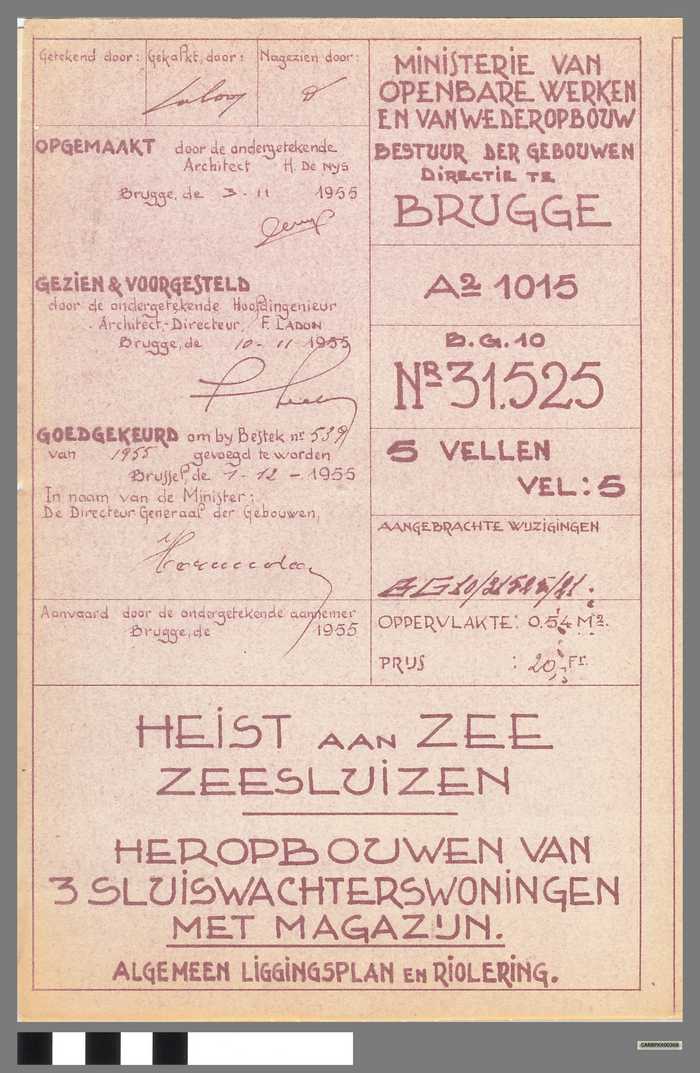 Getekend door: Gekalkt, door: Nagezien door:
OPGEMAAKT door de ondergetekende
Architect H. De NYS
Brugge, de 3 - 11 1955
GEZIEN & VOORGESTELD
door de ondergetekende Hoofdingenieur
Architect-Directeur, F. LADON
Brugge, de 10 - 11 1955
GOEDGEKEURD om by Bestek nr 539
van 1955 gevoegd te worden
Brussel, de 1 - 12 - 1955
In naam van de Minister:
De Directeur Generaal der Gebouwen,
Aanvaard door de ondergetekende aannemer
Brugge, de 1955
MINISTERIE VAN
OPENBARE WERKEN
EN VAN WEDEROPBOUW
BESTUUR DER GEBOUWEN
DIRECTIE TE
BRUGGE
A2 1015
B.G.10
NR 31.525
5 VELLEN
VEL: 5
AANGEBRACHTE WIJZIGINGEN
BG10/31525/21.
OPPERVLAKTE: 0.54 M2.
PRIJS : 20,- Fr.
HEIST AAN ZEE
ZEESLUIZEN
HEROPBOUWEN VAN
3 SLUISWACHTERSWONINGEN
MET MAGAZIJN.
ALGEMEEN LIGGINGSPLAN EN RIOLERING.